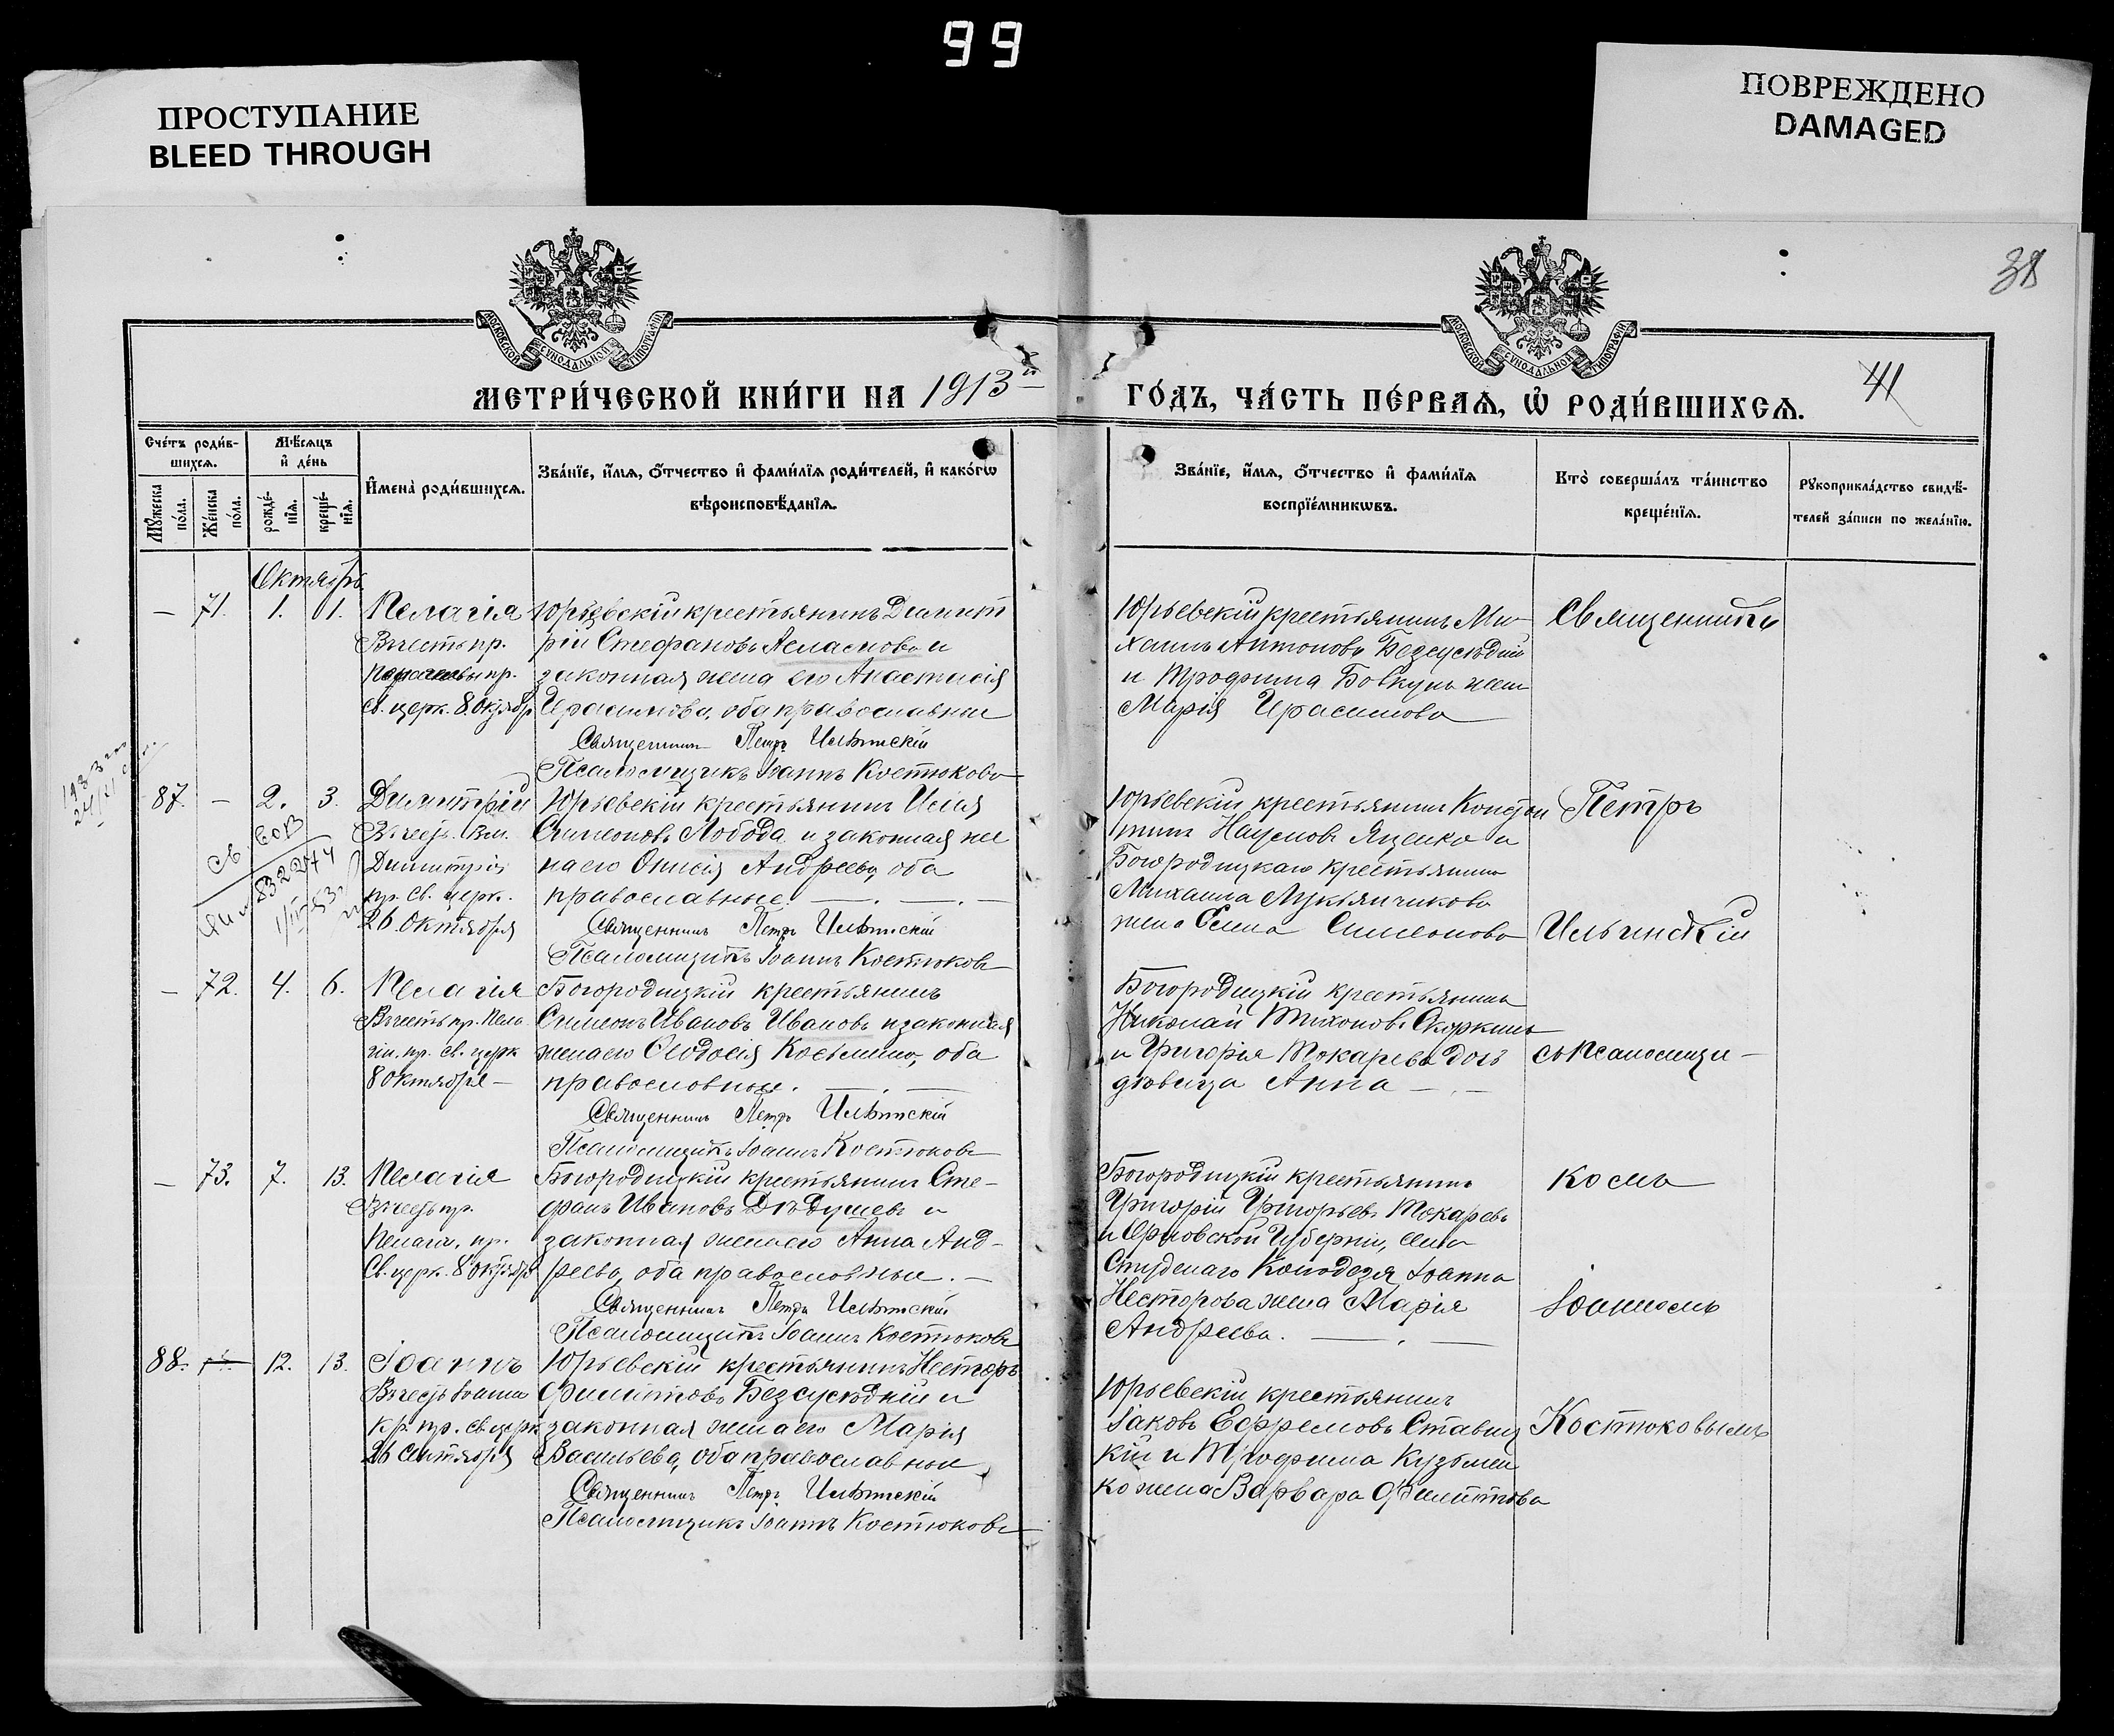 99
ПРОСТУПАНИЕ
BLEED THROUGH
ПОВРЕЖДЕНО
DAMAGED
МОСКОВСКОЙ СѴНОДАЛЬНОЙ ТИПОГРАФІИ
МОСКОВСКОЙ СѴНОДАЛЬНОЙ ТИПОГРАФІИ
38
МЕТРИ́ЧЕСКОЙ КНИ́ГИ НА 1913
ГО́ДЪ, ЧА́СТЬ ПЕ́РВАѦ, Ѽ РОДИ́ВШИХСѦ.
41
Сче́тъ роди́в-
шихсѧ.
Мѣ́сѧцъ
и҆ де́нь
Мꙋ́жеска
по́ла.
Же́нска
по́ла.
рожде́-
нїѧ.
креще́-
нїѧ.
И҆мена̀ роди́вшихсѧ.
Зва́нїе, и҆́мѧ, ѻ҆́тчество и҆ фами́лїѧ роди́телей, и҆ како́гѡ
вѣроисповѣ́данїѧ.
Зва́нїе, и҆́мѧ, ѻ҆́тчество и҆ фами́лїѧ
воспрїе́мникѡвъ.
Кто̀ соверша́лъ та́инство
креще́нїѧ.
Рꙋкоприкла́дство свидѣ́-
телей за́писи по жела́нїю.
Октябрь
— 71. 1. 01. Пелагія
Въ честь пр.
пр.
св. церк. 8. Октябр
Юрьевскій крестьянинъ Димит
рій Стефановъ и
законная жена его Анастасія
Герасимова, оба православные
Священникъ Петръ Ильинскій
Псаломщикъ Іоаннъ Костюковъ
Юрьевскій крестьянинъ Ми-
хаилъ Антоновъ Безсусѣдній
и Трофима Бовкунъ жена
Марія Герасимова
Священникъ
87. — 2. 3. Димитрій
Въ честь Вел.
Димитрія
пр. св. церк.
26 Октября
Юрьевскій крестьянинъ Илія
Симеоновъ Лобода и законная же
на его Онисія Андреева, оба
православные.
Священникъ Петръ Ильинскій
Псаломщикъ Іоаннъ Костюковъ
Юрьевскій крестьянинъ Констан
тинъ Наумовъ Яценко и
Богородицкаго крестьянина
Михаила Лукьянчикова
жена Елена Симеонова
Петръ
Ильинскій
— 72. 4. 6. Пелагія
Въ честь пр. Пела
гіи. пр. св. церк
8 Октября —
Богородицкій крестьянинъ
Симеонъ Ивановъ Ивановъ и законная
жена его Ѳеодосія Косьмина, оба
православные.
Священникъ Петръ Ильинскій
Псаломщикъ Іоаннъ Костюковъ
Богородицкій крестьянинъ
Николай Тихоновъ
и Григорія Токарева дочь
дѣвица Анна
съ псаломщи-
— 73. 7. 13. Пелагія
Въ честь пр.
Пелагіи. пр.
Св. церк. 8 Октября
Богородицкій крестьянинъ Сте-
фанъ Ивановъ Дѣдушевъ и
законная жена его Анна Анд-
реева, оба православные.
Священникъ Петръ Ильинскій
Псаломщикъ Іоаннъ Костюковъ
Богородицкій крестьянинъ
Григорій Григорьевъ Токаревъ
и Орловской Губерніи, села
Студенаго Колодезя Іоанна
Несторова жена Марія
Андреева.
комъ
Іоанномъ
88. 12. 13. Іоаннъ
Въ честь Іоанна
Кр. пр. св. церк
26 Сентября
Юрьевскій крестьянинъ Несторъ
Филиповъ Безсусѣдній и
законная жена его Марія
Васильева, оба православные
Священникъ Петръ Ильинскій
Псаломщикъ Іоаннъ Костюковъ
Юрьевскій крестьянинъ
Іаковъ Ефремовъ Ставиц
кій и Трофима Кузьмен
ко жена Варвара Филиппова
Костюковымъ